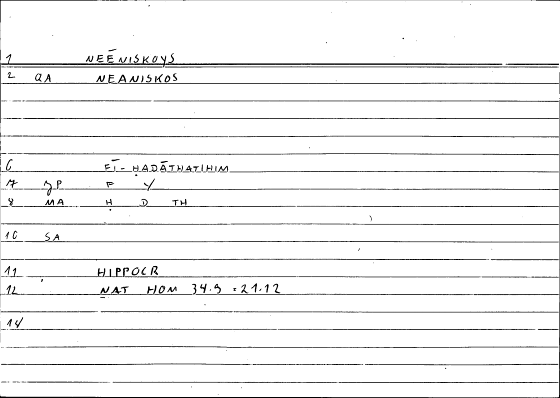 1 NEĒNISKOYS
2 QA NEANISKOS
6 FĪ-ḤADĀTHATIHIM
7 JP F Y
8 MA Ḥ D TH
10 SA
11 HIPPOCR
12 NAT HOM 34.9 = 21.12
14